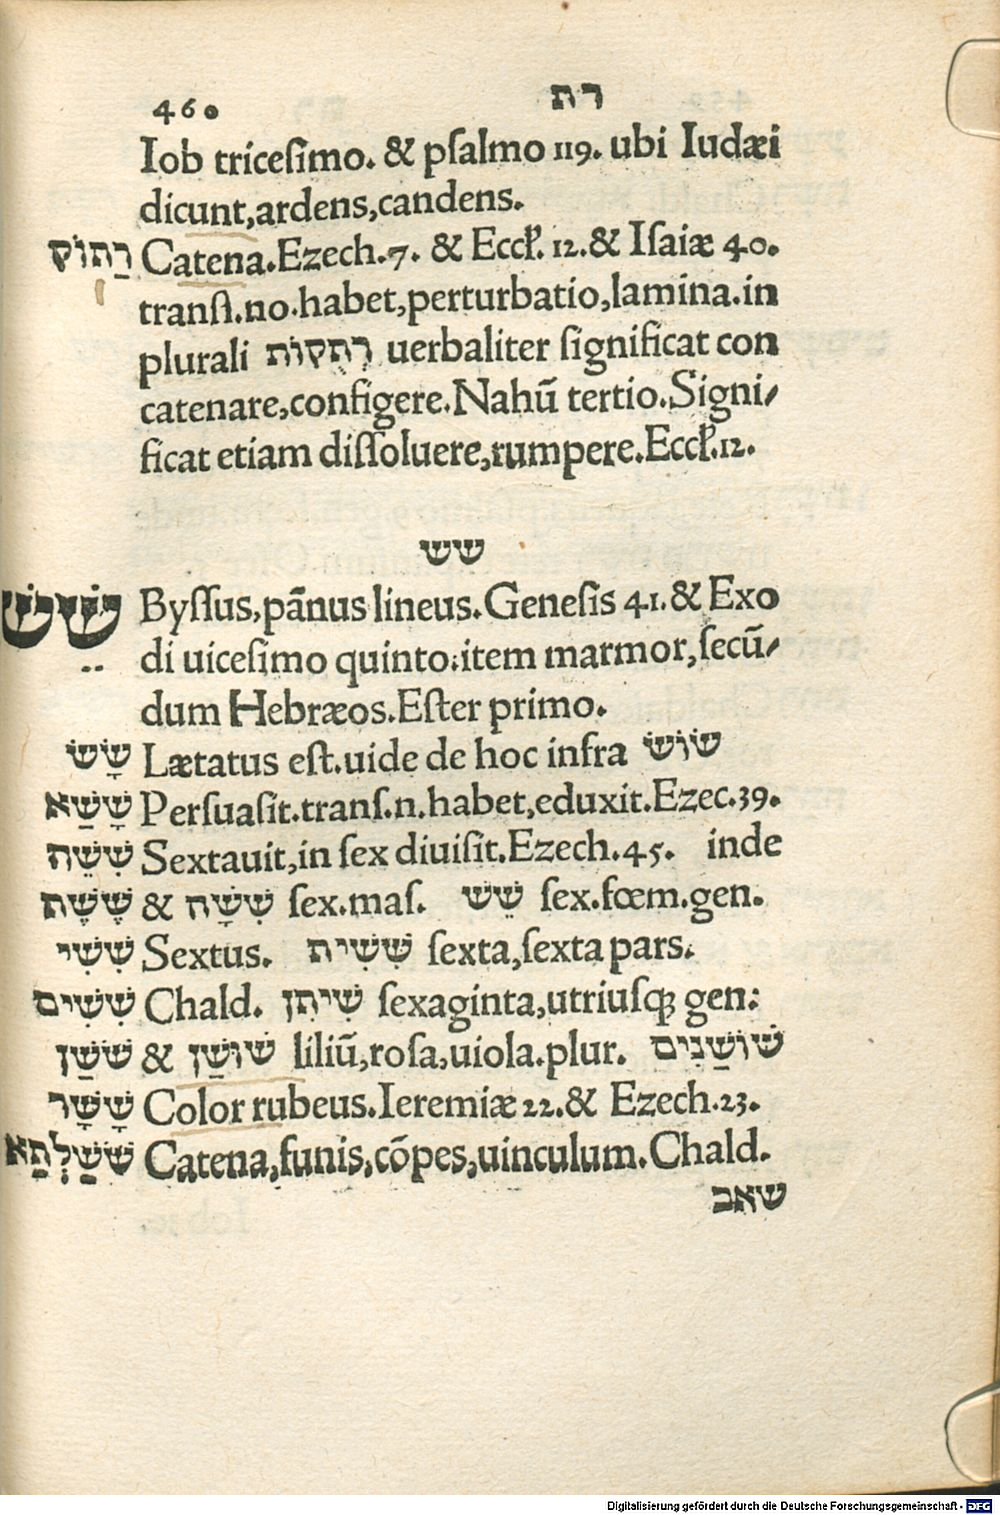 460 רת
Iob tricesimo. & psalmo 119. ubi Iudæi
dicunt,ardens,candens.
רַתוֹק Catena.Ezech.7. & Eccl. 12.& Isaiæ 40.
transl.no.habet,perturbatio,lamina.in
plurali רְתֻקוֹת uerbaliter significat con
catenare,configere.Nahū tertio.Signi/
ficat etiam dissoluere,rumpere.Eccl.12.
שש
שֵׁשׁ Byssus,pānus lineus.Genesis 41.& Exo
di uicesimo quinto.item marmor,secū/
dum Hebræos.Ester primo.
שָׂשׂ Lætatus est.uide de hoc infra שׂוֹשׂ
שָׁשַׁא Persuasit.trans.n.habet,eduxit.Ezec.39.
שִׁשֵּׁה Sextauit,in sex diuisit.Ezech.45. inde
שֶׁשֶׁת & שִׁשָׁה sex.mas. שֵׁשׁ sex.fœm.gen.
שִׁשִׁי Sextus. שִׁשִׁית sexta,sexta pars.
שִׁשִׁים Chald. שִׁיתִן sexaginta,utriusqꝫ gen:
שֹׁשַׁן & שׁוּשַׁן liliū,rosa,uiola.plur. שׁוֹשַׁנִים
שָׁשָׁר Color rubeus.Ieremiæ 22.& Ezech.23.
שֹׁשַׁלְתָּא Catena,funis,cōpes,uinculum.Chald.
שאב
Digitalisierung gefördert durch die Deutsche Forschungsgemeinschaft - DFG